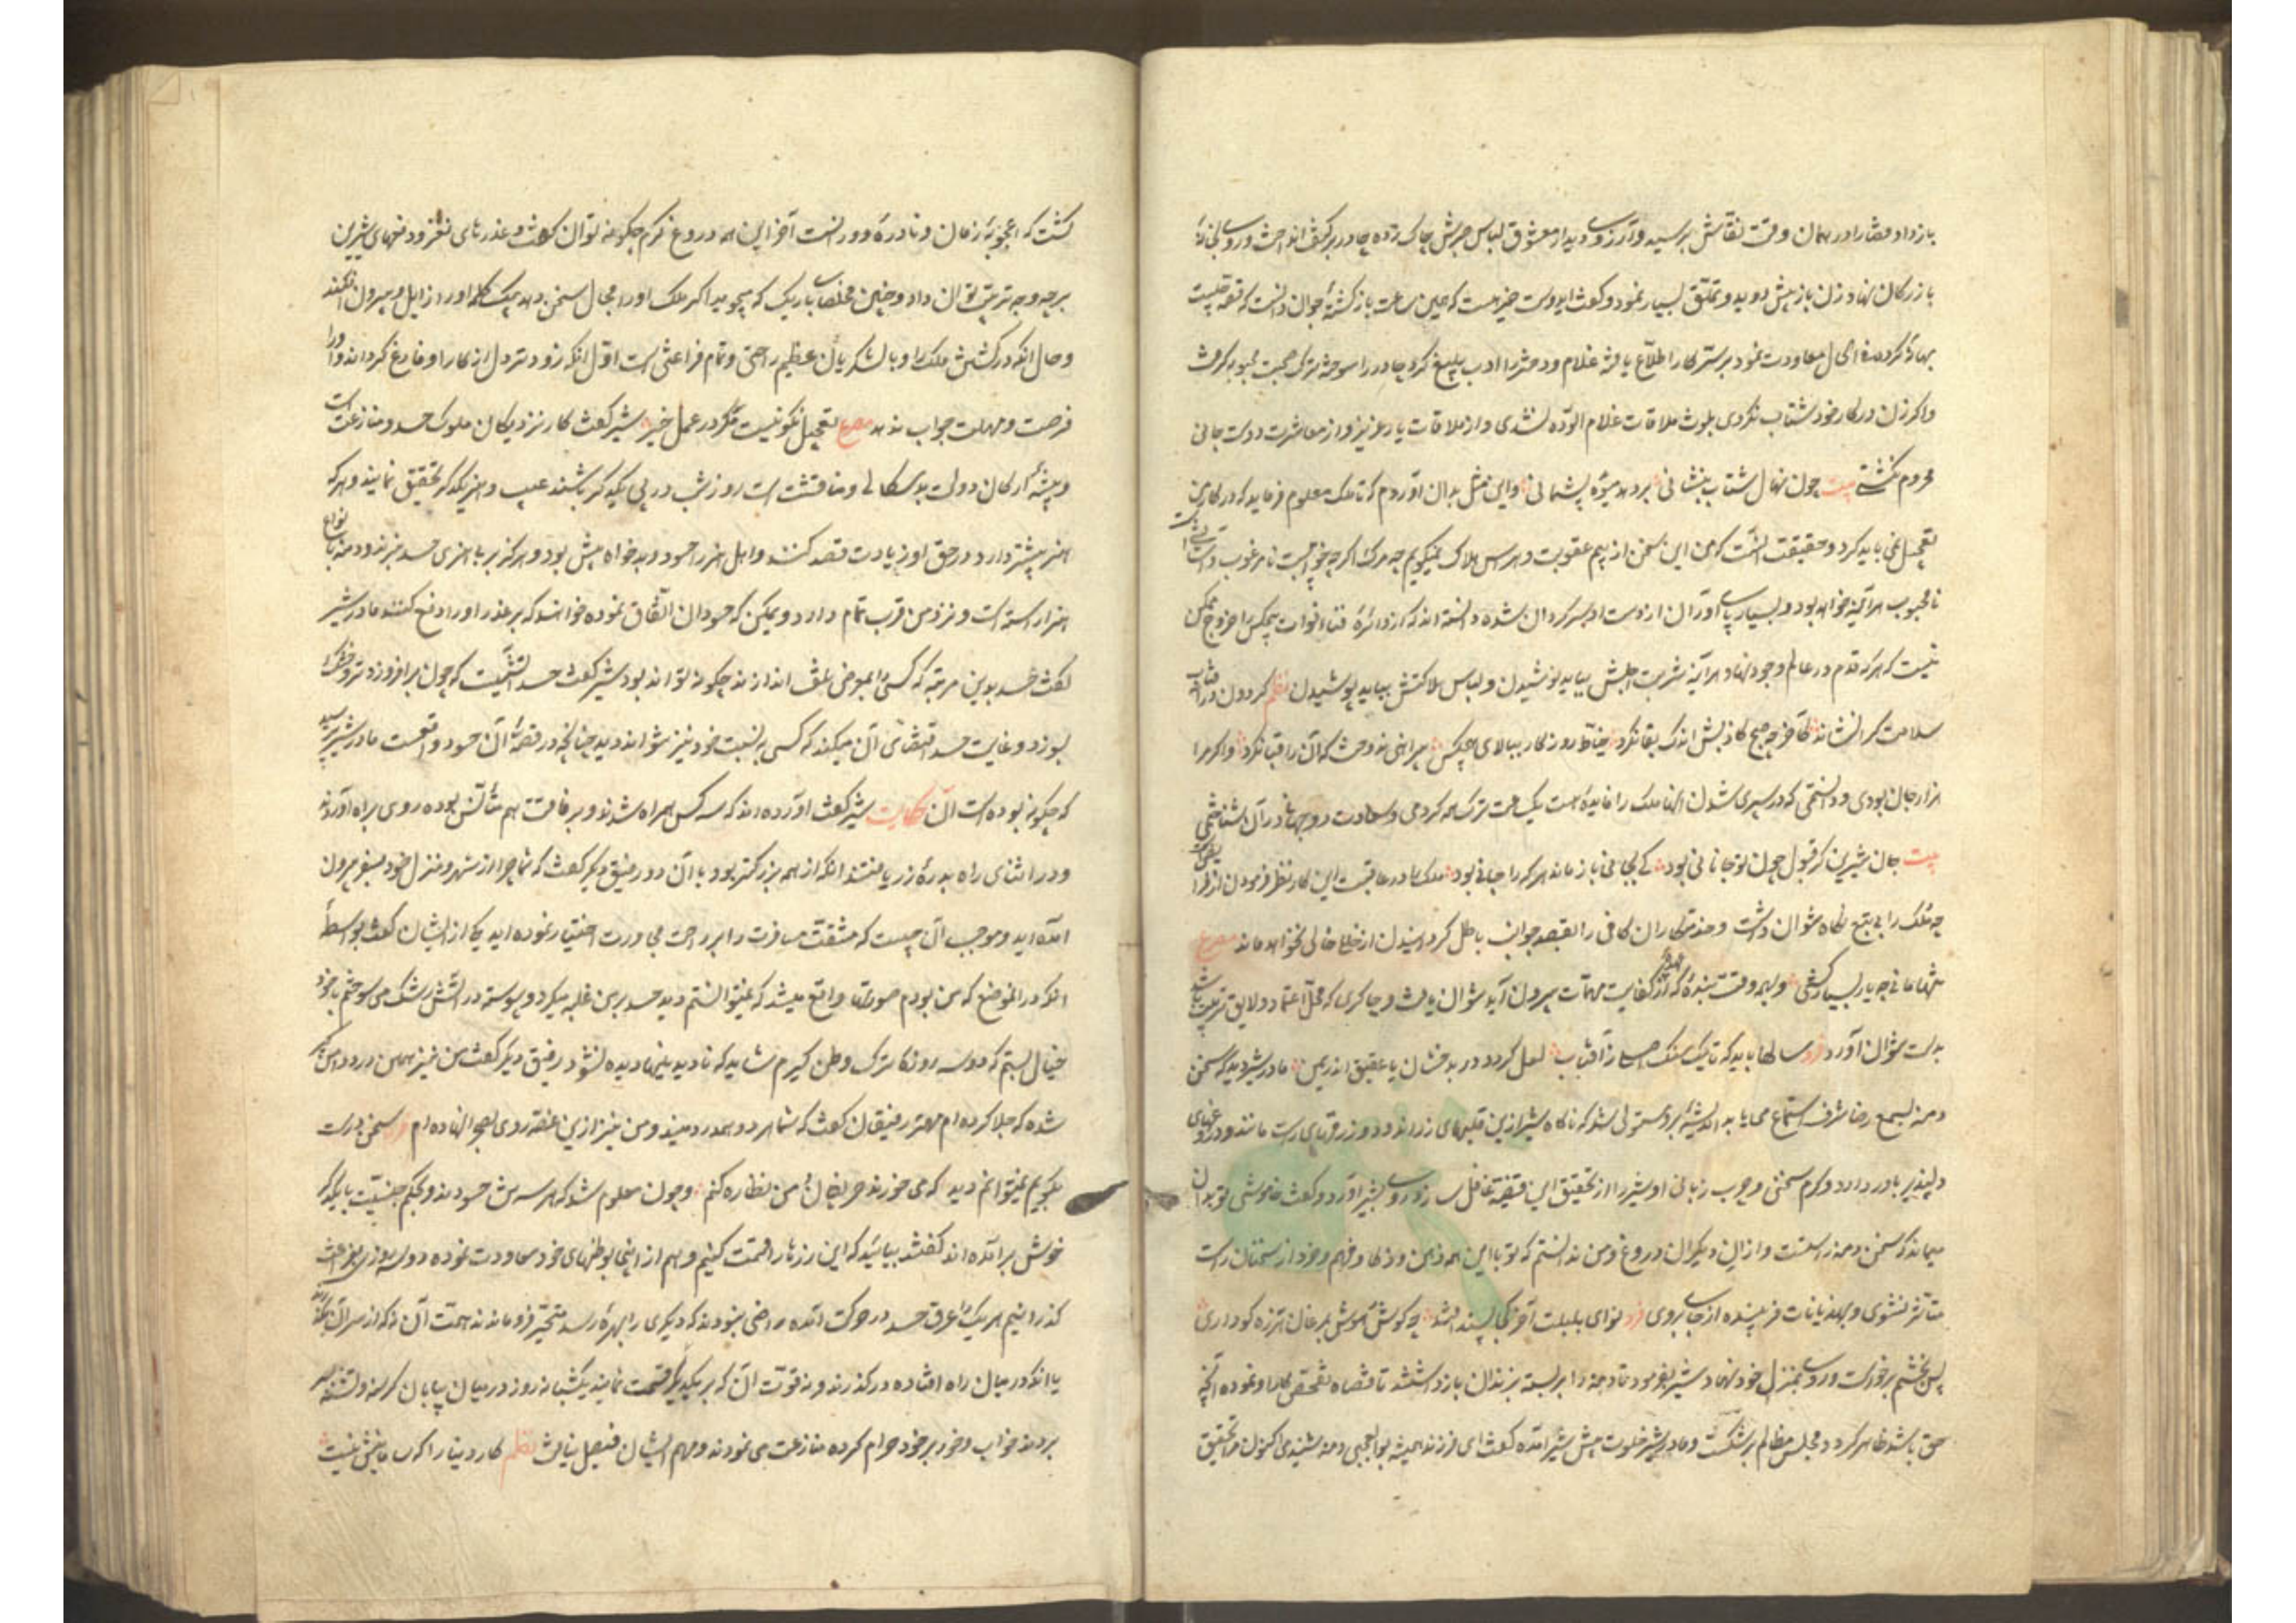 باز داد قضا را در همان وقت نقاش برسید و آرزوی دیدار معشوق لباس صبرش چاک زده چادر بر کتف انداخت و روی بخانهٔ
بازرگان نهاد زن باز پیش دوید و تملق بسیار نمود و گفت ای دوست خیر هست که همین ساعت بازگشتهٔ جوان دانست که قصه چیست
بهانهٔ کرده فی الحال معاودت نمود بر سر کار اطلاع یافته غلام و دختر را ادب بلیغ کرد چادر را سوخته ترک صحبت محبوبه گرفت
و اگر زن در کار خود شتاب نکردی بلوث ملاقات غلام آلوده نشدی و از ملاقات یار عزیز و از معاشرت دوست جانی
محروم نگشتی بیت چون نهال شتاب بنشانی بر دهد میوهٔ پشیمانی و این مثل بدان آوردم که تا ملک معلوم فرماید که در کار من
تعجیل نمی باید کرد و حقیقت آنست که من این سخن از بیم عقوبت و هراس هلاک نمیگویم چه مرگ اگرچه خوابیست نامرغوب و آسایشیست
نامحبوب هرآینه خواهد بود و بسیار پای آوران از دست او سرگردان شده دانسته اند که از دائرهٔ فنا و فوات هیچکس را خروج ممکن
نیست که هر که قدم در عالم وجود نهاد هرآینه شربت اجلش بباید نوشیدن و لباس هلاکتش بباید پوشیدن نظم گردون در آفتاب
سلامت کرا نشاند کآخر چو صبح کاذبش اندک بقا نکرد خیاط روزگار ببالای هیچکس پیراهنی ندوخت که آن را قبا نکرد و اگر مرا
هزار جان بودی و دانستمی که در سپری شدن آنها ملک را فایدهٔ هست یک ساعت ترک همه کردمی و سعادت دو جهانی در آن شناختمی
بیت جان شیرین گر قبول چون تو جانانی بود کی بجانی باز ماند هر که را جانی بود ملک را در عاقبت این کار نظر فرمودن از فرایض است
چه ملک را بی تبع نگاه نتوان داشت و خدمتکاران کافی را بقصد جوانب باطل گردانیدن از خلل خالی نخواهد ماند مصرع
تنها مانی چو یار بسیار کشی و بهر وقت بندهٔ که از عهدهٔ کفایت مهمات بیرون آید نتوان یافت و چاکری که محل اعتماد و لایق تربیت باشد
بدست نتوان آورد فرد سالها باید که تا یک سنگ اصلی ز آفتاب لعل گردد در بدخشان یا عقیق اندر یمن مادر شیر دید که سخن
دمنه بسمع رضا شرف استماع می یابد اندیشهٔ برو مستولی شد که ناگاه شیر ازین قلبهای زراندود و زرقهای راست مانند و دروغهای
دلپذیر باور دارد و گرم سخنی و چرب زبانی او شیر را از تحقیق این قضیه غافل سازد روی بشیر آورد و گفت خاموشی تو بدان
میماند که سخن دمنه راستست و از آن دیگران دروغ و من ندانستم که تو با این همه ذهن و ذکا و فهم و خرد از سخنان راست
متأثر نشوی و بهذیانات فریبنده از جای بروی فرد نوای بلبلت آخر کجا پسند افتد چو گوش هوش بمرغان هرزه گو داری
پس بخشم برخاست و روی بمنزل خود نهاد شیر بفرمود تا دمنه را بربسته بزندان باز داشتند تا قضاه تفحص کار او نموده آنچه
حق باشد ظاهر گردد و مجلس مظالم برشکست و مادر شیر خلوت پیش شیر آمده گفت ای فرزند همیشه بوالعجبی دمنه شنیدمی اکنون مرا تحقیق
گشت که اعجوبهٔ زمان و نادرهٔ دورانست آخر این همه دروغ گرم چگونه توان گفت و عذرهای نغز و دفعهای شیرین
بر چه وجه ترتیب توان داد و چنین مخلصهای باریک که میجوید اگر ملک او را مجال سخن دهد بیک کلمه او را ازین ورطه بیرون افکند
و حال آنکه در کشتنش ملک را و باقی لشکریان عظیم راحتی و تمام فراغتی است اولی آنکه زودتر دل از کار او فارغ گرداند و او را
فرصت و مهلت جواب ندهد مصرع تعجیل نکو نیست مگر در عمل خیر شیر گفت کار نزدیکان ملوک حسد و منازعت است
و پیشهٔ ارکان دولت بدسگالی و مناقشت است روز و شب در پی یکدیگر باشند عیب و هنر یکدیگر تحقیق نمایند و هر که
هنر بیشتر دارد در حق او زیادت قصد کنند و اهل هنر را حسود و بدخواه بیش بود و هرگز بر بی هنری حسد نبرند و دمنه بانواع
هنر آراسته است و نزد من قرب تمام دارد و یمکن که حسودان اتفاق نموده خواهند که بر عذر او را دفع کنند مادر شیر
گفت حسد بدین مرتبه که کسی را بمعرض تلف اندازند چگونه تواند بود شیر گفت حسد آتشیست که چون برافروزد تر و خشک را
بسوزد و غایت حسد اقتضای آن میکند که کسی به نسبت خود نیز نتواند دید چنانچه در قصهٔ آن حسود واقعست مادر شیر پرسید
که چگونه بوده است آن حکایت شیر گفت آورده اند که سه کس همراه شدند و برفاقت هم متأنس بوده روی براه آوردند
و در اثنای راه بدرهٔ زر یافتند آنکه از همه بزرگتر بود با آن دو رفیق دیگر گفت که شما چرا از شهر و منزل خود بسفر بیرون
آمده اید و موجب آن چیست که مشقت مسافرت را بر راحت مجاورت اختیار نموده اید یکی از ایشان گفت بواسطهٔ
آنکه در آن موضع که من بودم صورتها واقع میشد که نمیتوانستم دید حسد بر من غلبه میکرد و پیوسته در آتش رشک می سوختم با خود
خیال بستم که دو سه روزکی ترک وطن گیرم شاید که نادیدنیها دیده نشود رفیق دیگر گفت من نیز همین درد دامن گیر
شده که جلا کرده ام مهتر رفیقان گفت که شما هر دو همدرد منید و من نیز ازین غصه روی بصحرا نهاده ام فرد سخن درست
بگویم نمیتوانم دید که می خورند حریفان و من نظاره کنم و چون معلوم شد که هر سه تن حسودند و بحکم جنسیت با یکدیگر
خوش برآمده اند گفتند بیائید که این زر را قسمت کنیم و هم از اینجا بوطنهای خود معاودت نموده دو سه روزی بفراغت
گذرانیم هر یک را عرق حسد در حرکت آمده راضی نبودند که دیگری را بهره رسد متحیر فرو ماندند نه همت آن که از سر آن بگذرند
یا آنکه در میان راه افتاده درگذرند و نه قوت آن که بر یکدیگر قسمت نمایند یکشبانه روز در میان بیابان گرسنه و تشنه بسر
بردند خواب و خور بر خود حرام کرده منازعت می نمودند و مهم ایشان فیصل نیافت نظم کار دنیا را که پایانیش نیست